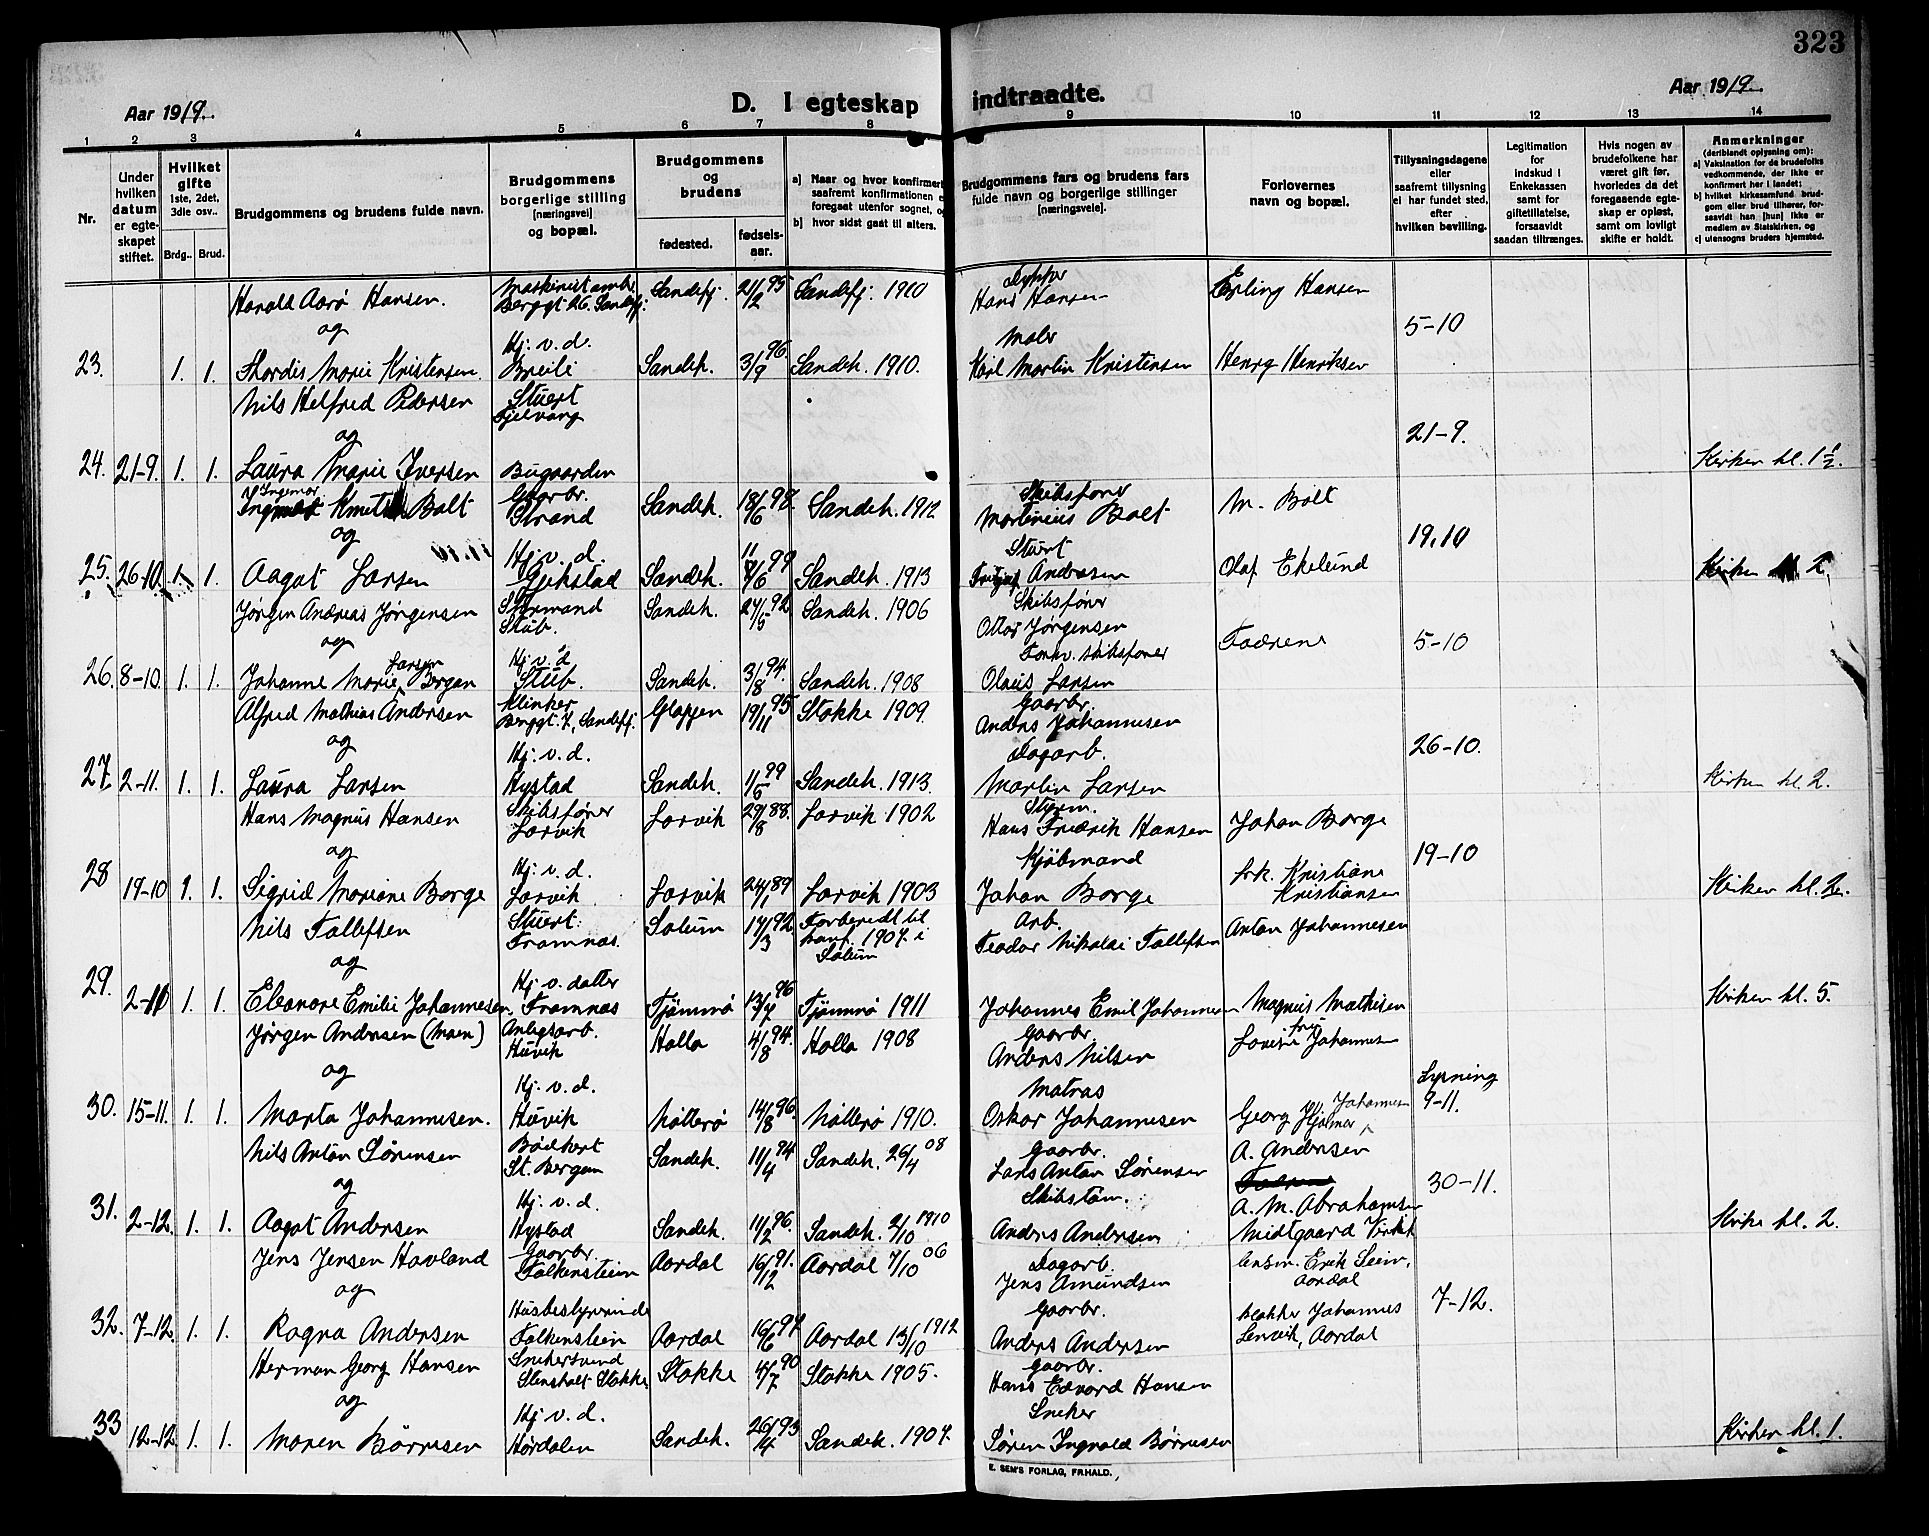 323
Aar 1919.
D. I egteskap indtraadte.
Aar 1919.
1 2 3 4 5 6 7 8 9 10 11 12 13 14
Nr.
Under hvilken datum er egteskapet stiftet.
Hvilket gifte 1ste, 2det, 3die osv..
Brdg.. Brud.
Brudgommens og brudens fulde navn.
Brudgommens borgerlige stilling [næringsvei] og bopæl.
Brudgommens og brudens
fødested. fødselsaar.
a) Naar og hvor konfirmert
saafremt konfirmationen e
foregaat utenfor sognet, og
b) hvor sidst gaat til alters.
Brudgommens fars og brudens fars fulde navn og borgerlige stillinger [næringsveie].
Forlovernes navn og bopæl.
Tillysningsdagene eller saafremt tillysning ei har fundet sted, efter hvilken bevilling.
Legitimation for indskud i Enkekassen samt for giftetillatelse, forsaavidt saadan tiltrænges.
Hvis nogen av brudefolkene har været gift før, hvorledes da det foregaaende egteskap er opløst, samt om lovligt skifte er holdt.
Anmerkninger
(deriblandt oplysning om):
a) Vaksination for de brudefolks vedkommende, der ikke er konfirmert her i landet;
b) hvilket kirkesamfund brudgom eller brud tilhører, forsaavidt han [hun] ikke er medlem av Statskirken, og
c) utensogns bruders hjemsted.
Harald Aarø Hansen. Maskinist amb. Berggt 26. Sandefj. Sandefj. 21/2 95 Sandefj. 1910 Hans Hansen Erling Hansen
og 5-10
23. 1. 1. Thordis Marie Kristensen. Hj. v. d. Breili Sandeh. 3/9 96. Sandeh. 1910. Maler Karl Martin Kristensen Henry Henriksen
Nils Helfred Pedersen Stuert Fjelvang
og 21-9.
24. 21-9. 1. 1. Laura Marie Iversen Bugaarden Kirken kl. 1½.
Ingmar Knut Bolt Gaarbr. Strand Sandeh. 18/6 98. Sandeh. 1912 Skibsfører Martinius Bolt M. Bolt
og 19.10
25. 26-10. 1. 1. Aagot Larsen Hj. v. d. Gjekstad Sandeh. 99 Sandeh. 1913 Stuert Andresen Olaf Ekelund Kirken 2.
Jørgen Andreas Jørgensen Styrmand Stub. Sandeh. 24/5 92. Sandeh. 1906 Skibsfører Jørgensen Fædrene
og 5-10
26. 8-10. 1. 1. Johanne Marie Larsen Bergan Hj. v. d. Stub. Sandeh. 3/8 94. Sandeh. 1908 Forhv. skibsfører Olaus Larsen
Alfred Mathias Andersen Klinker Bergggt. 7, Sandefj. 19/11 95 Stokke 1909. Gaarbr. Anders Johannesen
og 26-10.
27. 2-11. 1. 1. Laura Larsen Hj. v. d. Hystad Sandeh. 1/6 99 Sandeh. 1913. Dagarb. Martin Larsen Kirken kl. 2.
Hans Magnus Hansen Skibsfører Larvik Larvik 29/8 88. Larvik 1902 Styrm. Hans Fredrik Hansen Johan Borge
og 19-10
28 19-10 1. 1. Sigrid Mariane Borge Hj. v. d. Larvik Larvik 24/1 89 Larvik 1903 Kjøbmand Johan Borge frk. Kristiane Kristiansen Kirken kl. 2.
Nils Tallefsen Stuert. Framnæs. Solum 14/3 92 Forberedt til konf. 1907. i Solum Arb. Teodor Nikolai Tallefsen Anton Johannesen
og
29. 2-11 1. 1. Eleonore Emilie Johannesen Hj. v. datter Framnæs Tjømmø 13/7 96 Tjømmø 1911 Johannes Emil Johannesen Magnus Mathisen Kirken kl. 5.
Jørgen Andersen (Moen) Anlegsarb. Huvik Holla 4/8 94. Holla 1908 Gaarbr. Anders Nilsen fru Lovise Johannesen
og Lysning 9-11.
30. 15-11. 1. 1. Marta Johannesen. Hj. v. d. Huvik Nøtterø 14/8 96. Nøtterø 1910. Matros Oskar Johannesen Georg Hjalmar Johannesen
Nils Anton Sørensen Bødkert St. Bergan Sandeh. 11/4 94 Sandeh. 26/4 08 Gaarbr. Lars Anton Sørensen A. Andersen
og 30-11.
31. 2-12. 1. 1. Aagot Andersen Hj. v. d. Hystad Sandeh. 11/2 96. Sandeh. 2/10 1910 Skibstøm. Anders Andersen A. M. Abrahamsen Midtgaard Kirke kl. 2.
Jens Jensen Havland Gaarbr. Falkenstein Aardal 16/12 91. Aardal 7/10 06 Dagarb. Jens Amundsen Erik Seim, Aardal
og 7-12.
32. 7-12. 1. 1. Ragna Andersen Husbestyrerinde Falkenstein Aardal 16/6 97 Aardal 13/10 1912 Gaarbr. Anders Andersen Johannes Lenvik, Aardal
Herman Georg Hansen Snekersvend Stensholt Stokke Stokke 4/7 90 Stokke 1905. Gaarbr. Hans Edvard Hansen
og
33 12-12. 1. 1. Maren Børresen Hj. v. d. Hørdalen Sandeh. 26/4 93 Sandeh. 1907. Sneker Søren Ingvald Børresen Kirken kl. 1.
E. SEM'S FORLAG, FR.HALD.